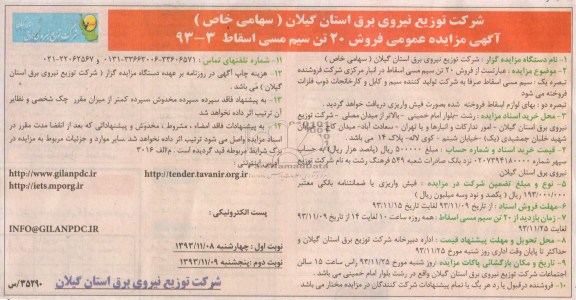 شرکت توزیع نیروی برق استان گیلان ( سهامی خاص )
آگهی مزایده عمومی فروش ۲۰ تن سیم مسی اسقاط ۳-۹۳
۱- نام دستگاه مزایده گزار : شرکت توزیع نیروی برق استان گیلان ( سهامی خاص )
۲- موضوع مزایده : عبارتست از فروش ۲۰ تن سیم مسی اسقاط در انبار مرکزی شرکت فروشنده
تبصره یک : سیم مسی اسقاط صرفا به شرکت تولید کننده سیم و کابل و کارخانجات ذوب فلزات
فروخته می شود
تبصره دو : بهای لوازم اسقاط فروخته شده بصورت فیش واریزی دریافت خواهد گردید.
۳- محل خرید اسناد مزایده : رشت -بلوار امام خمینی - بالاتر از میدان مصلی - شرکت توزیع
نیروی برق استان گیلان - امور تدارکات و انبارها و یا تهران - سعادت آباد- میدان کاج خیابان
شهید خلیان جمشیدی (یک) خیابان شبنم - کوی لاله- پلاک ۱۴ می باشد.
۴- قیمت خرید اسناد و شماره حساب : مبلغ ۵۰۰۰۰۰ ریال (پانصد هزار ریال) به حساب
سپهر شماره ۰۲۰۷۳۹۴۱۸۰۰۰ نزد بانک صادرات شعبه ۵۴۹ فرهنگ رشت به نام شرکت توزیع
نیروی برق استان گیلان
۵- نوع و مبلغ تضمین شرکت در مزایده : فیش واریزی یا ضمانتنامه بانکی معتبر
۱۹۳/۰۰۰/۰۰۰ ریال ( یکصد و نود وسه میلیون ریال )
۶-مهلت فروش اسناد : از تاریخ ۹۳/۱۱/۰۹ لغایت تاریخ ۹۳/۱۱/۱۵
۷- زمان بازدید از ۲۰ تن سیم مسی اسقاط : همه روزه ساعت ۱۰ لغایت ۱۴ از تاریخ ۹۳/۱۱/۰۹
لغایت ۹۳/۱۱/۲۵
۸- محل تحویل و مهلت پیشنهاد قیمت : اداره دبیرخانه شرکت توزیع نیروی برق استان گیلان و
حداکثر تا پایان وقت اداری روز شنبه مورخ ۹۳/۱۱/۲۵
۹- تاریخ و مکان بازگشائی پاکات مزایده : روز شنبه مورخ ۹۳/۱۱/۲۵ راس ساعت ۱۵ سالن
اجتماعات شرکت توزیع نیروی برق استان گیلان واقع در رشت بلوار امام خمینی می باشد.
۱۰- فروشنده درقبول یا رد هر یک یا تمام پیشنهادات شرکت کنندگان در مزایده مختار می باشد.
۱۱- شماره تلفنهای تماس : ۳۳۶۰۶۵۷۱-۳۳۶۶۳۰۰۶-۰۱۳۱ و ۲۲۰۶۲۵۶۷-۰۲۱
۱۲- هزینه چاپ آگهی در روزنامه بر عهده دستگاه مزایده گزار ( شرکت توزیع نیروی برق استان
گیلان ) می باشد .
۱۳- به پیشنهاد فاقد سپرده سپرده مخدوش سپرده کمتر از میزان مقرر چک شخصی و نظایر
آن ترتیب اثر داده نخواهد شد
۱۴- به پیشنهادات فاقد امضاء , مشروط , مخدوش و پیشنهاداتی که بعد از انقضا مدت مقرر در
اسناد مزایده واصل می شود ترتیب اثر داده نخواهد شد سایر موارد و جزئیات مربوط به مزایده در
برگ شرایط مربوطه قید گردیده است . م الف ۳۰۱۶
آدرس اینترنتی :
http://www.gilanpdc.ir
http://tender.tavanir.org.ir
http://iets.mporg.ir
پست الکترونیکی :
INFO@GILANPDC.IR
نوبت اول : چهارشنبه ۱۳۹۳/۱۱/۰۸
نوبت دوم :پنجشنبه ۱۳۹۳/۱۱/۰۹
شرکت توزیع نیروی برق استان گیلان
۳۵۲۹۰/س